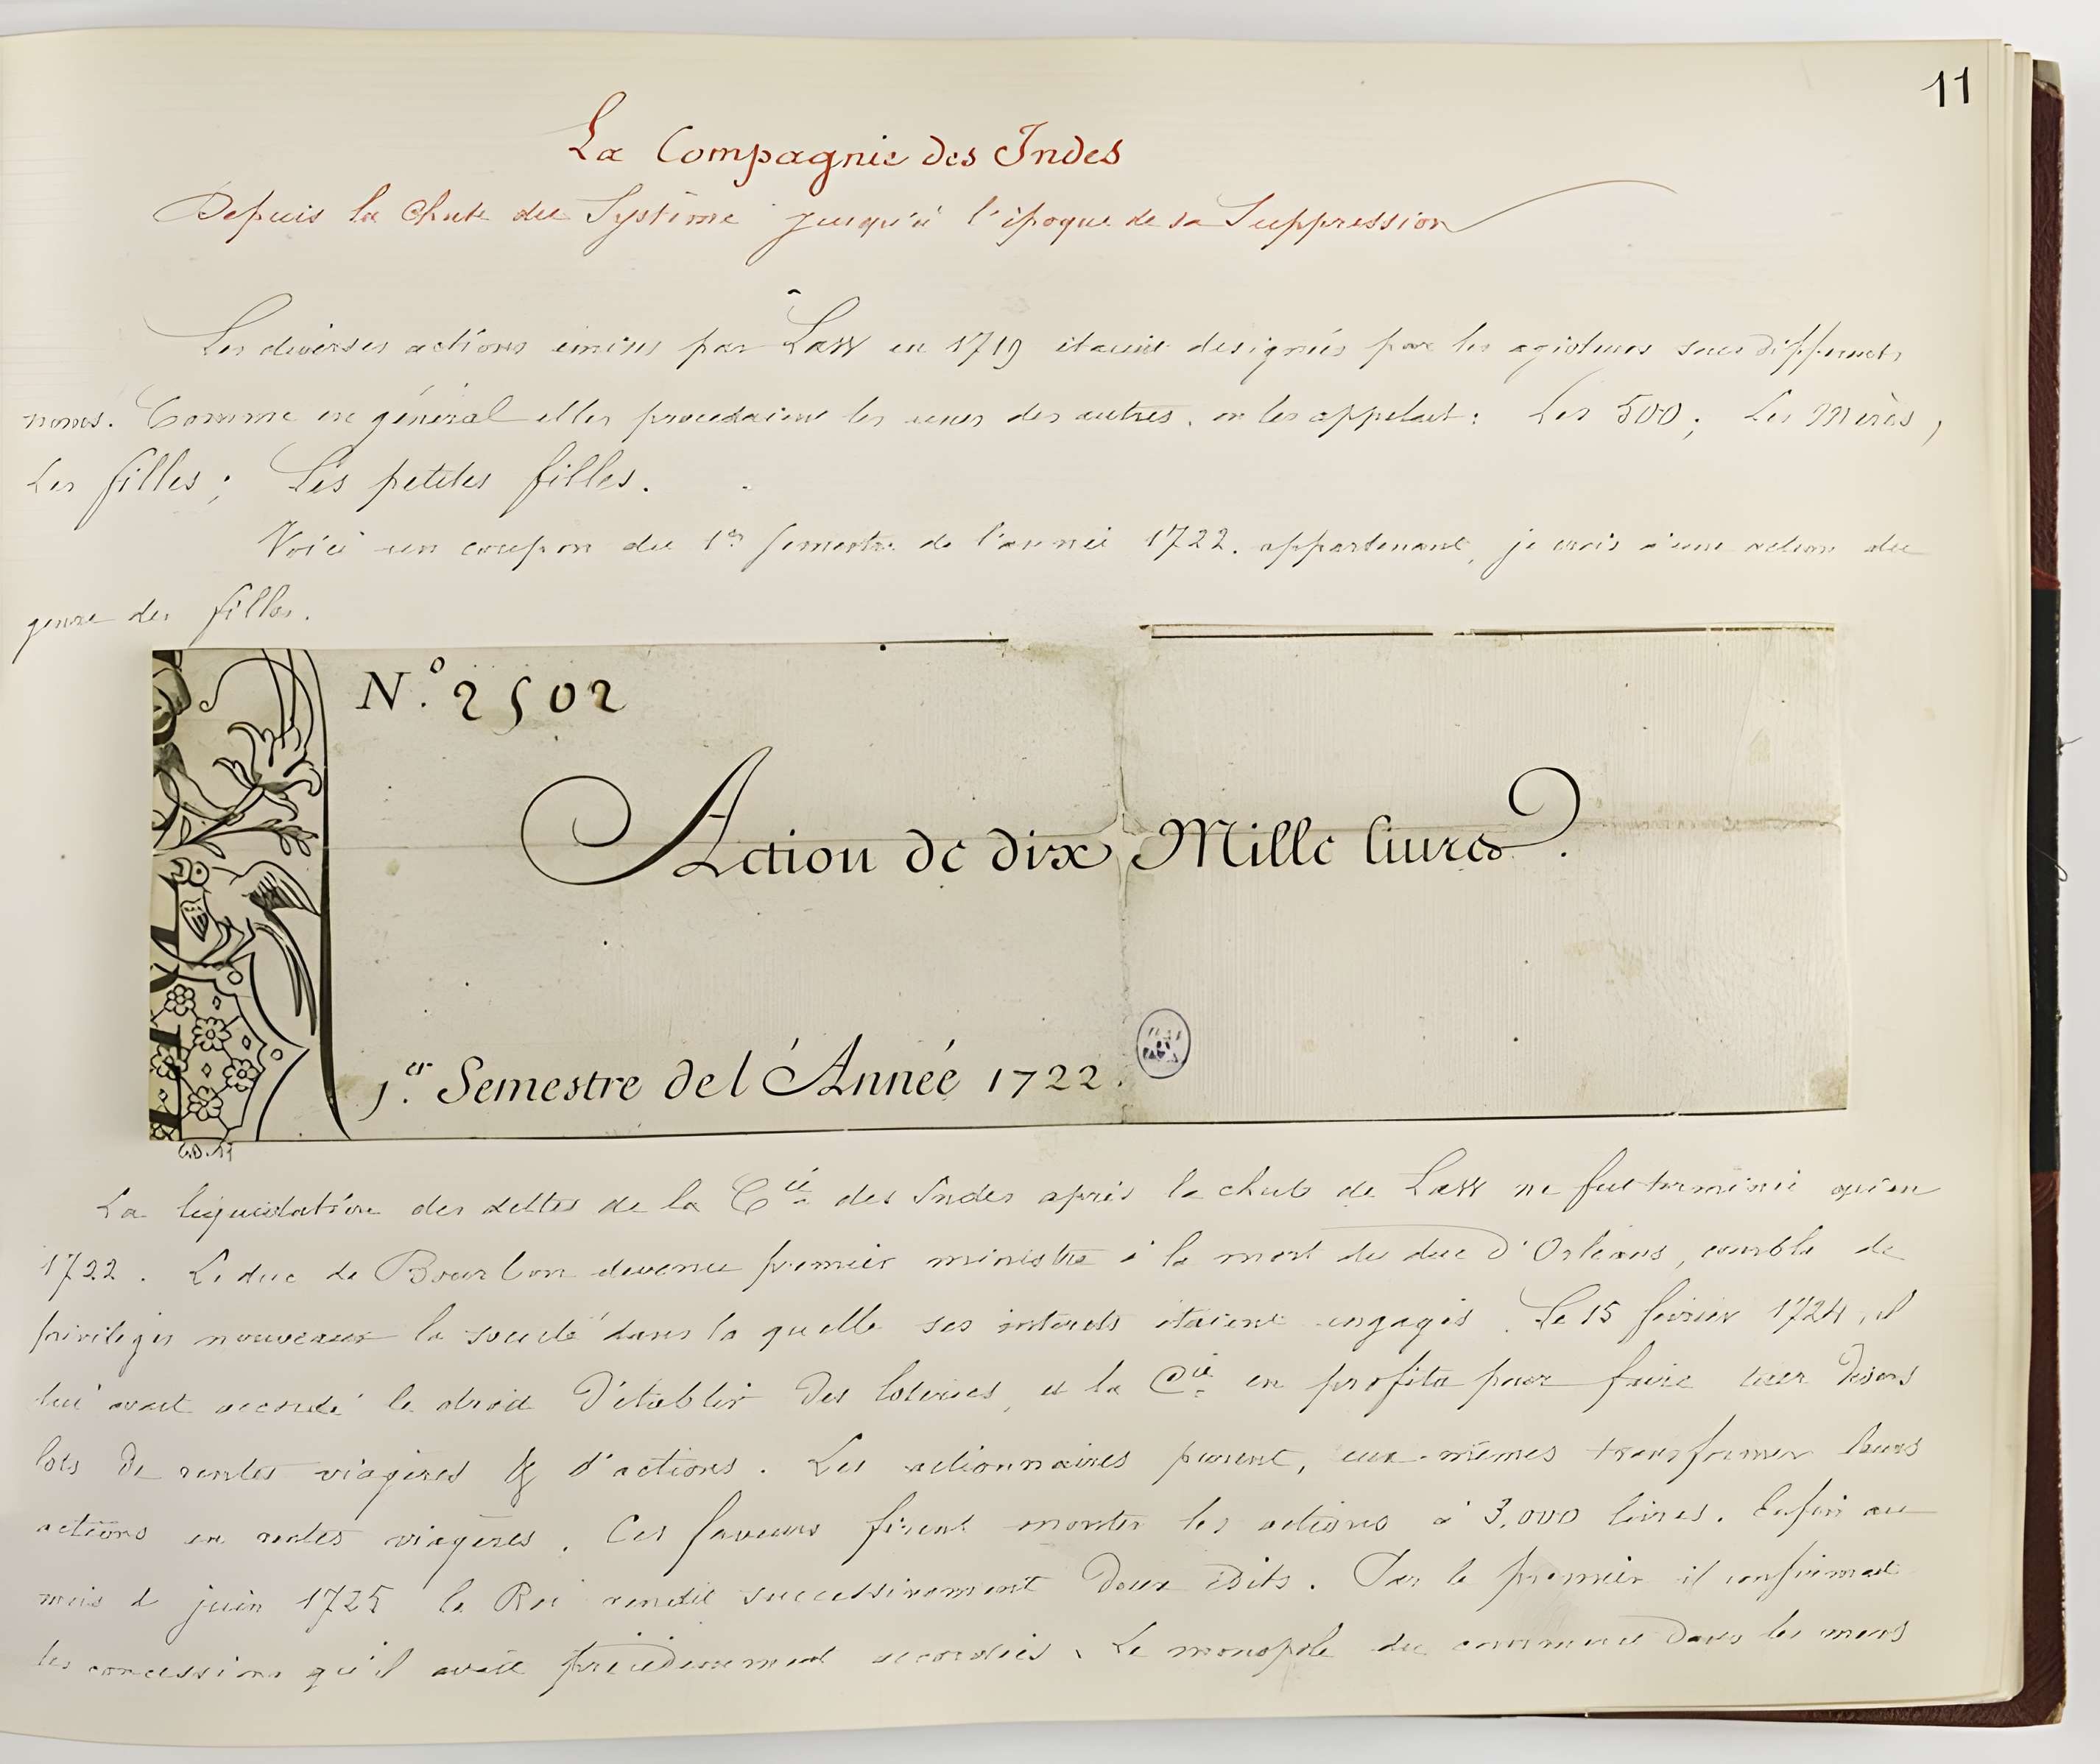 11
La Compagnie des Indes
Depuis la Chute du Système jusqu'à l'époque de sa Suppression
Les diverses actions émises par Law en 1719 étaient designées par les agioteurs sous différents
noms. Comme en général elles procedaient les unes des autres, on les appelait : Les 500 ; Les Mères ;
Les filles ; Les petites filles.
Voici un coupon du 1er Semestre de l'année 1722. appartenant, je crois à une action du
genre des filles.
N.º 2502
Action de dix Mille livres.
1.er Semestre de l'Année 1722.
La liquidation des dettes de la Cie des Indes après la chute de Law ne fut terminée qu'en
1722. Le duc de Bourbon devenu premier ministre à la mort du duc d'Orléans, combla de
privilèges nouveaux la société dans la quelle ses intérêts étaient engagés. Le 15 février 1724, il
lui avait accordé le droit d'établir des loteries, et la Cie en profita pour faire tirer divers
lots de rentes viagères & d'actions. Les actionnaires purent, eux-mêmes transformer leurs
actions en rentes viagères. Ces faveurs firent monter les actions à 3.000 livres. Enfin au
mois de juin 1725 le Roi rendit successivement deux édits. Par le premier il confirmait
les concessions qu'il avait précédemment accordées, Le monopole du commerce dans les mers